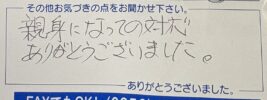 その他お気づきの点をお聞かせ下さい。
親身になっての対応
ありがとうございました。
ありがとうございました。